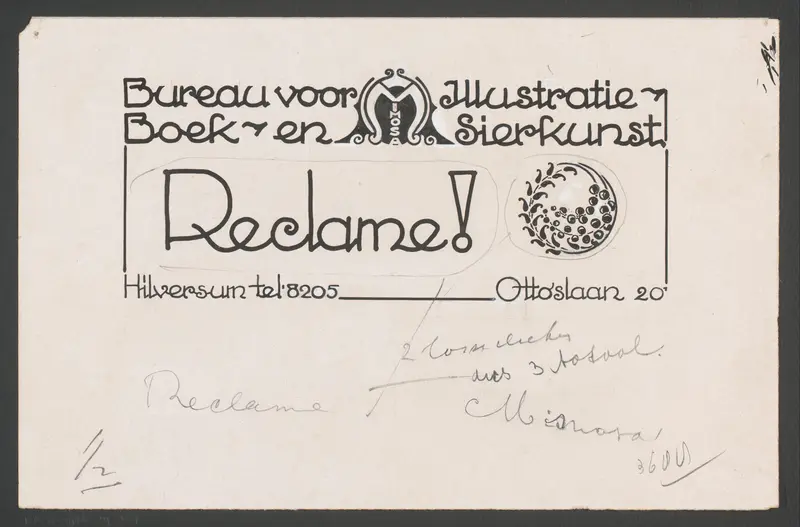 Bureau voor Illustratie-
Boek- en Sierkunst
MIMOSA
Reclame!
Hilversum tel. 8205 Otto'slaan 20
2 losse clichés
dus 3 totaal.
Reclame
Mimosa
3600
1/2